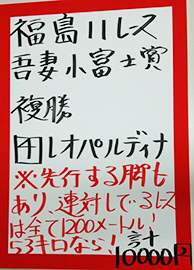 福島11レース
吾妻小富士賞
複勝
4レオパルディナ
※先行する脚も
あり、連対して・3レス
は全て1200メートル!
53キロなら!合計
10000円